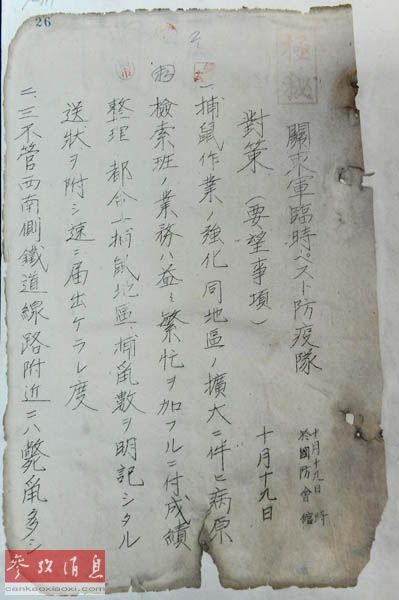 26
極秘
十月十九日 時
於國防會館
關東軍臨時ペスト防疫隊
對策(要望事項) 十月十九日
一、捕鼠作業ノ強化同地區ノ擴大ニ件ヒ病原
檢索班ノ業務ハ益々繁忙ヲ加フルニ付成績
整理ノ都合上捕鼠地區、捕鼠數ヲ明記シタル
送狀ヲ附シ速ニ届出ケラレ度
二、三不管西南側鐵道線路附近ニハ斃鼠多シ
参考消息
cankaoxiaoxi.com